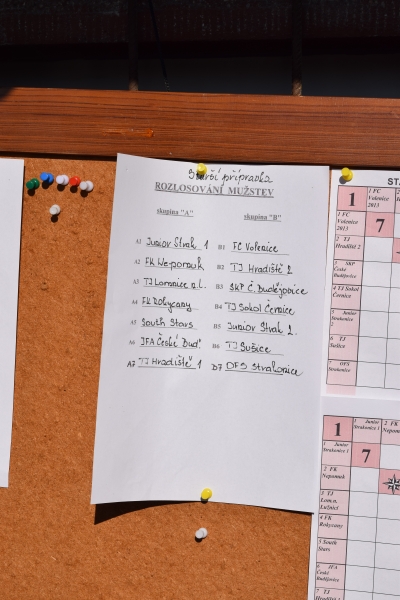 Starší přípravka
ROZLOSOVÁNÍ MUŽSTEV
skupina "A" skupina "B"
A1 Junior Strak 1 B1 FC Volenice
A2 FK Nepomuk B2 TJ Hradiště 2
A3 TJ Lomnice n.L. B3 SKP Č. Budějovice
A4 FK Rokycany B4 TJ Sokol Černice
A5 South Stars B5 Junior Strak 2.
A6 JFA České Buď. B6 TJ Sušice
A7 TJ Hradiště 1 B7 OFS Strakonice
1
1 FC
Volenice
2013
1 FC
Volenice
2013
7
2 TJ
Hradiště 2
3 SKP
České
Budějovice
4 TJ Sokol
Černice
5 Junior
Strakonice
2
6 TJ
Sušice
7 OFS
Strakonice
1
1 Junior
Strakonice 1
2 FK
1 Junior
Strakonice 1
7
2 FK
Nepomuk
3 TJ
Lom.n.
Lužnicí
4 FK
Rokycany
5 South
Stars
6 JFA
České
Budějovice
7 TJ